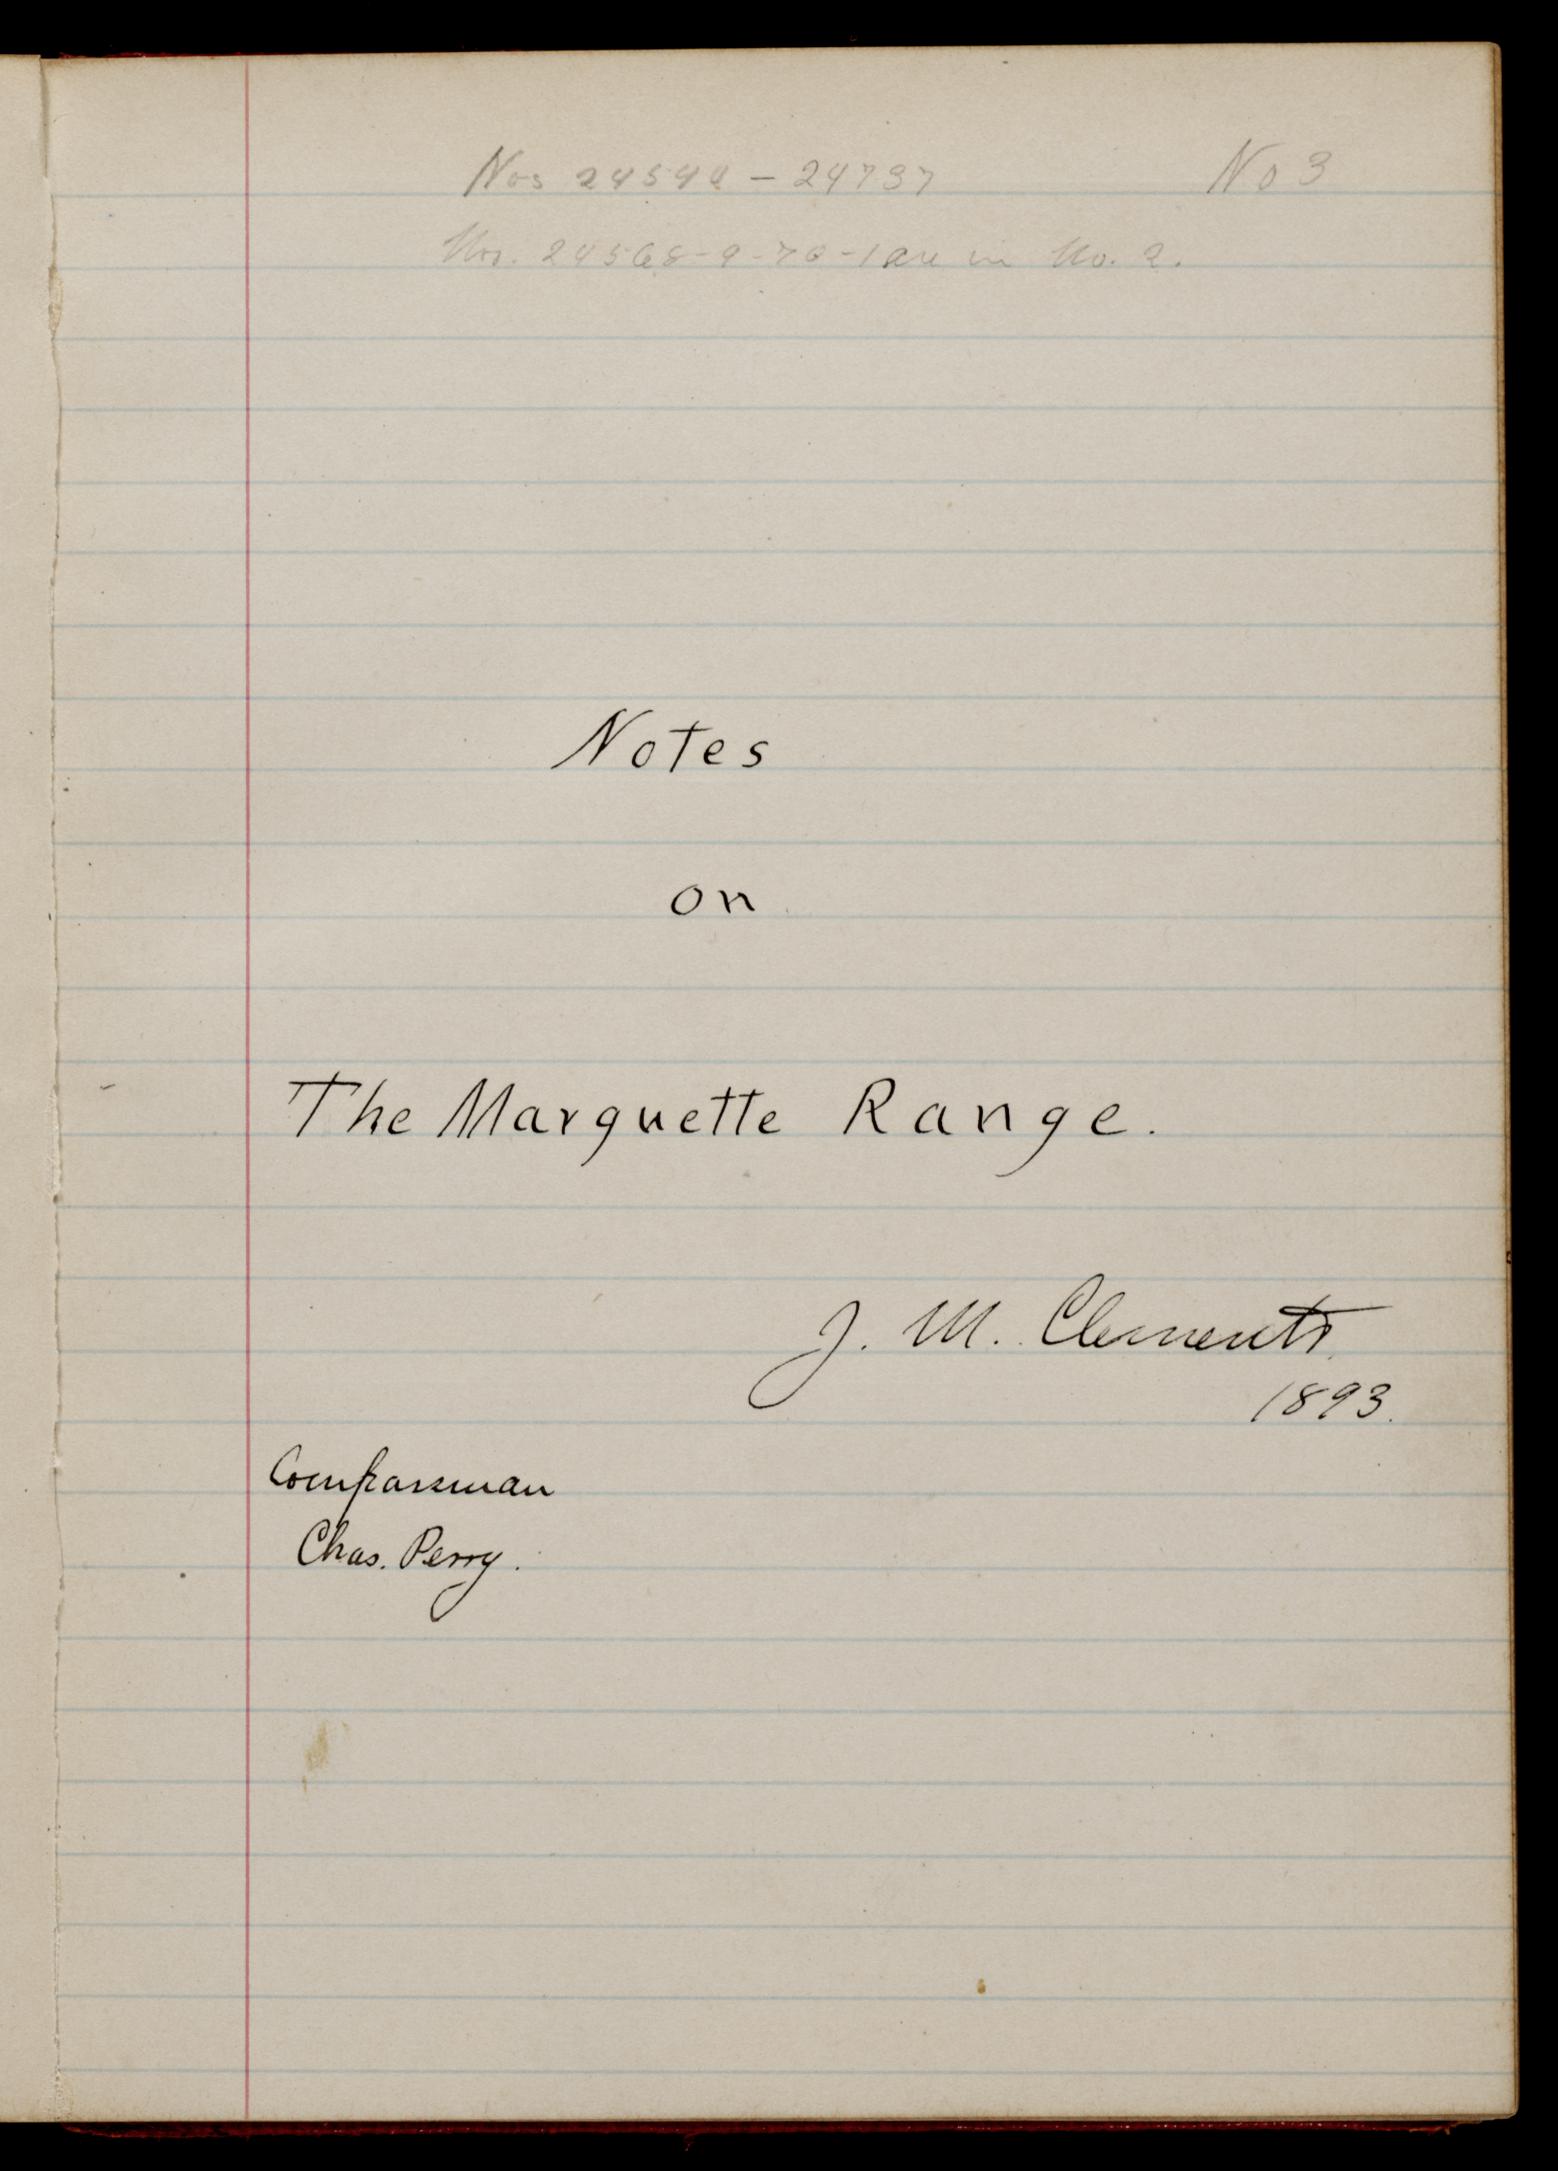 Nos 24544 - 24737 No 3
Nos. 24568-9-70-1 are in No. 2.
Notes
on
The Marquette Range.
J. M. Clements
1893.
Compassman
Chas. Perry.